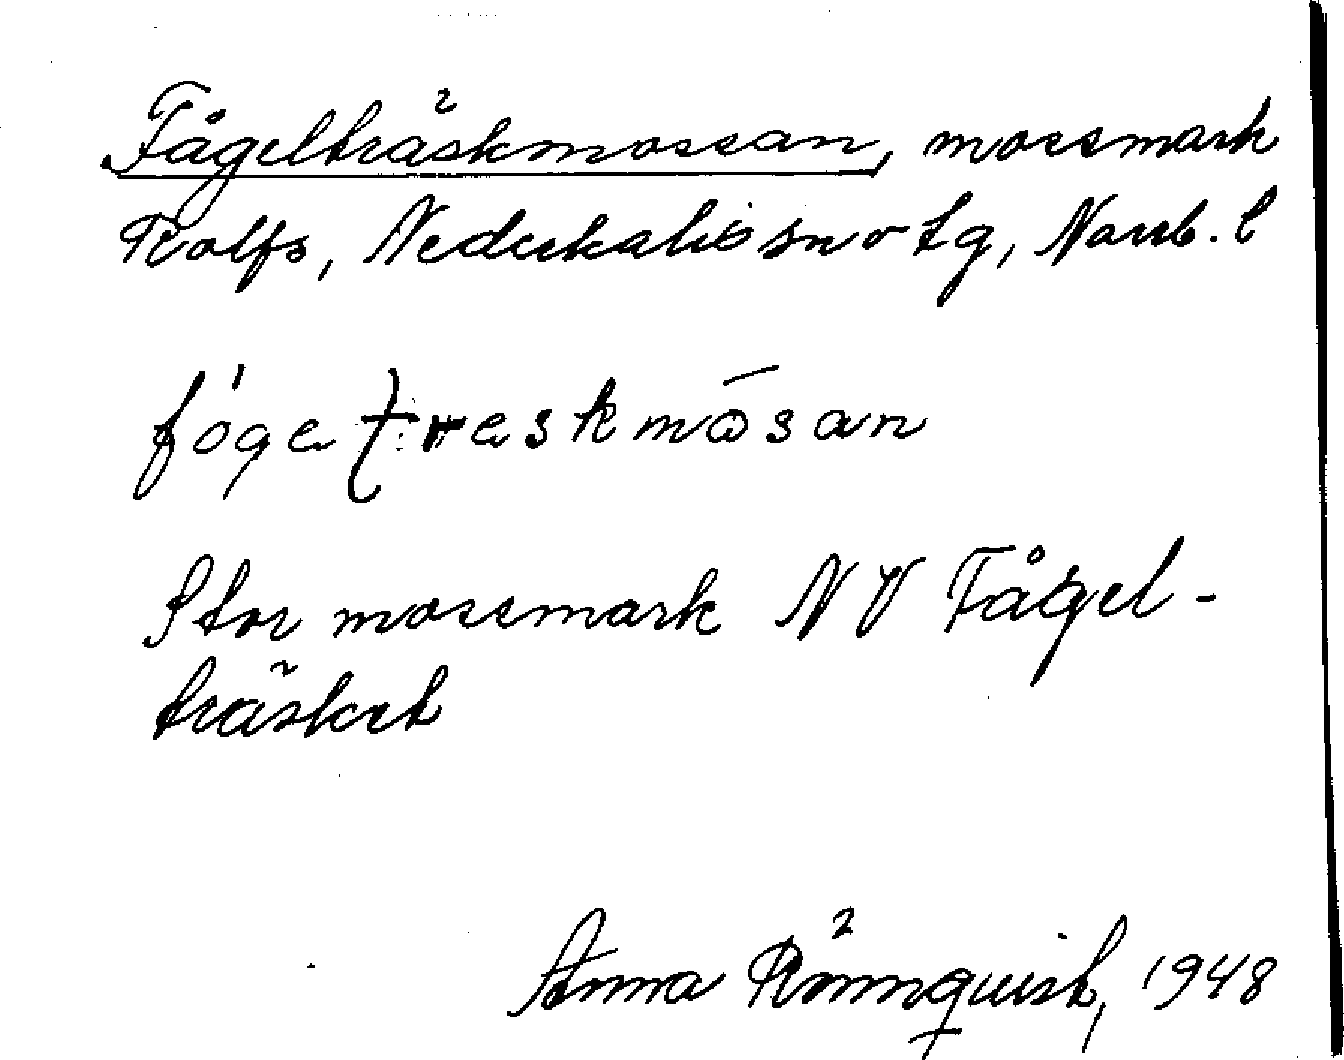 Fågelträskmossan, mossmark
Rolfs, Nederkalix sn o tg, Norrb. l
fógeƚreskmōsan
Stor mossmark NV Fågel-
träsket
Anna Rönnquist, 1948